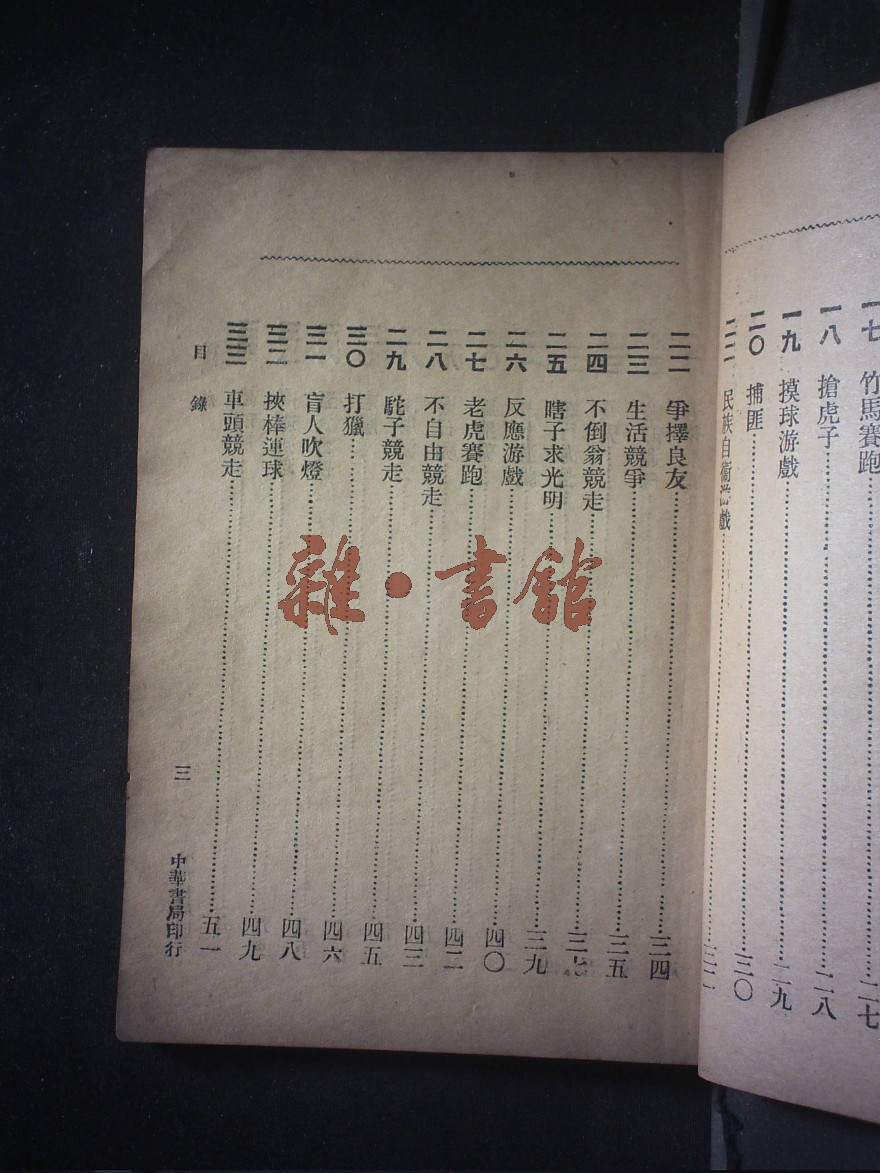 一七 竹馬賽跑 二七
一八 搶虎子 二八
一九 摸球游戲 二九
二〇 捕匪 三〇
民族自衞游戲
二二 爭擇良友 三四
二三 生活競爭 三五
二四 不倒翁競走 三七
二五 瞎子求光明 三九
二六 反應游戲 四〇
二七 老虎賽跑 四二
二八 不自由競走 四三
二九 駝子競走 四五
三〇 打獵 四六
三一 盲人吹燈 四八
三二 挾棒運球 四九
三三 車頭競走 五一
目錄
三
中華書局印行
雜·書館